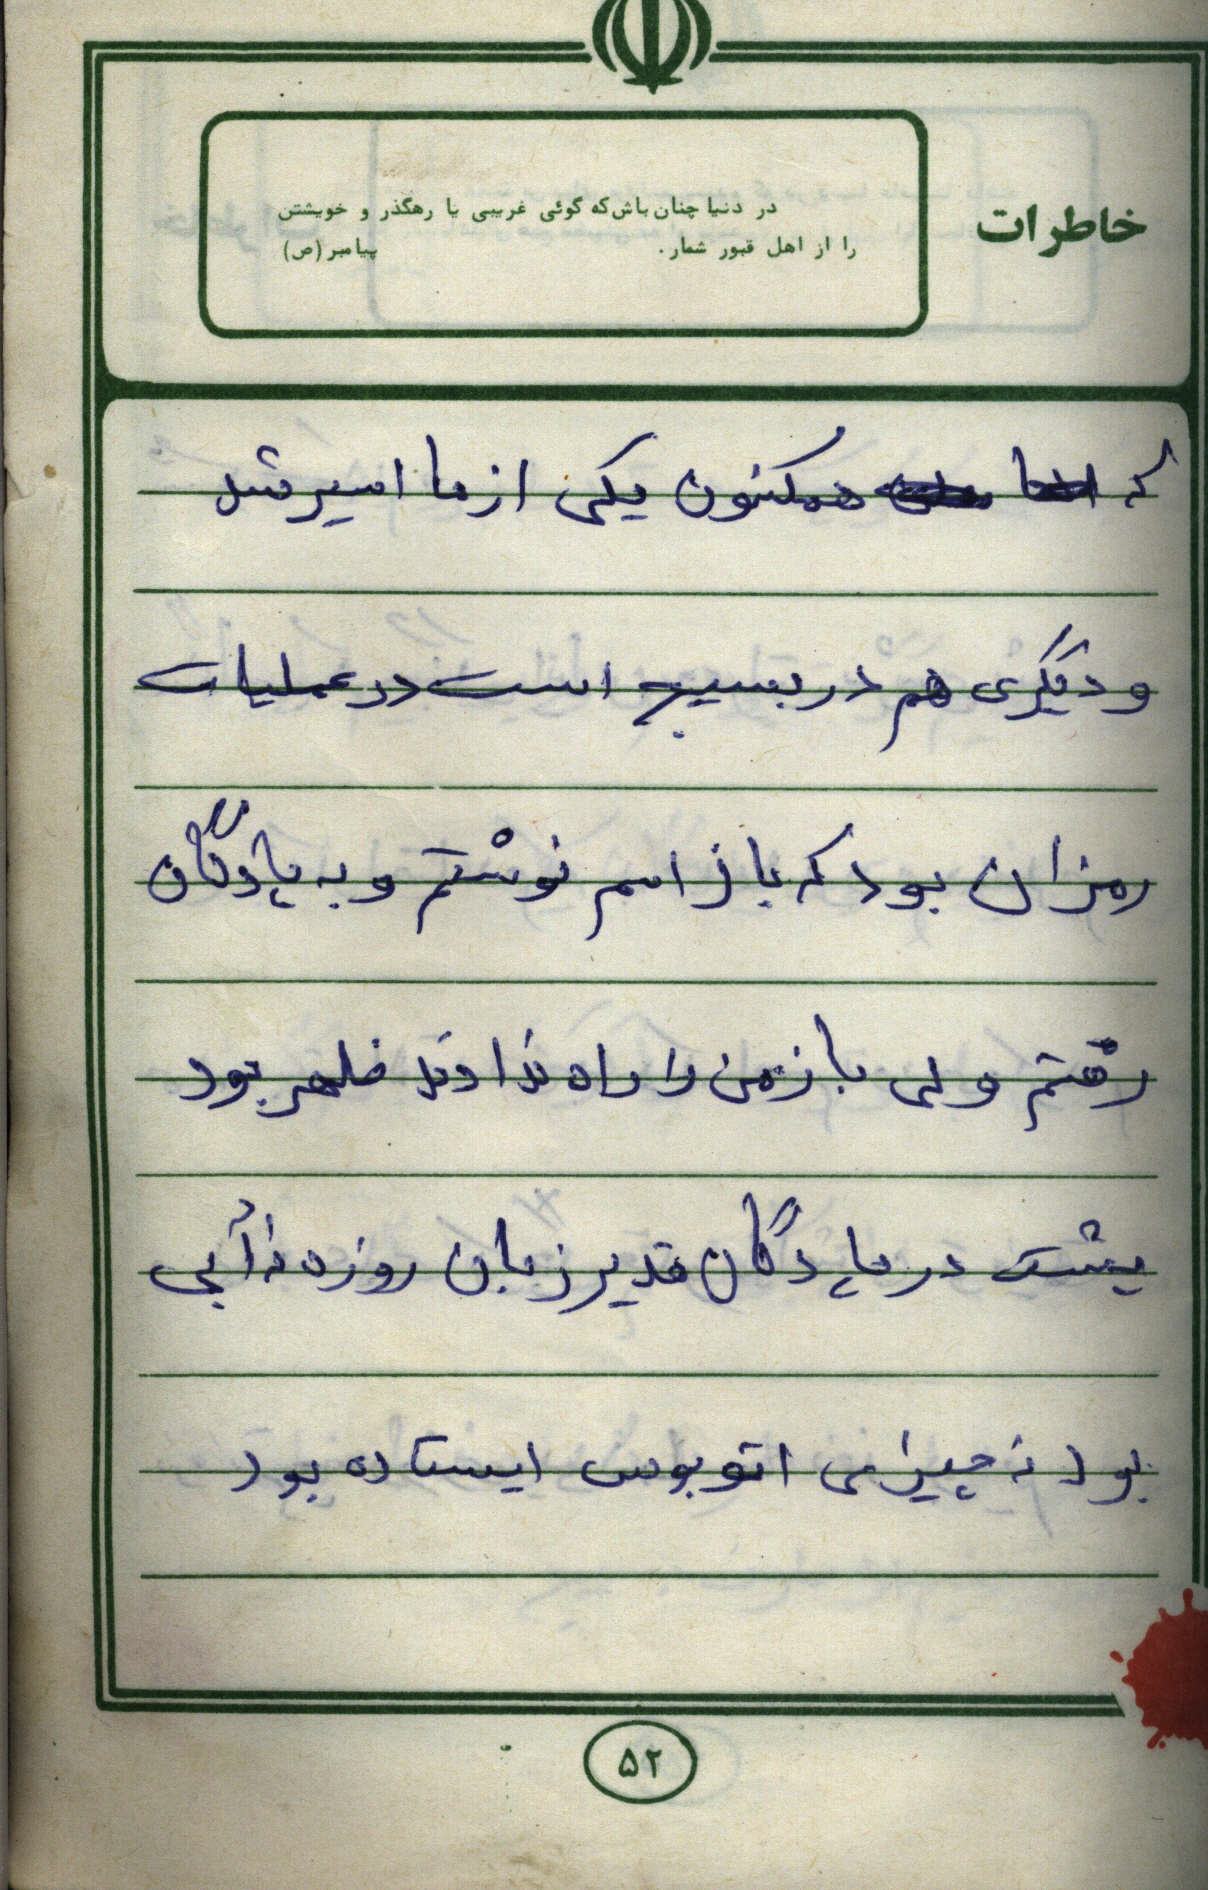 خاطرات
در دنیا چنان باش که گوئی غریبی یا رهگذر و خویشتن
را از اهل قبور شمار. پیامبر (ص)
که همکنون یکی از ما اسیر شد
و دیگری هم در بسیج است در عملیات
رمزان بود که باز اسم نوشتم و به پادگان
رفتم ولی باز من را راه ندادند ظهر بود
پشت در پادگان قدیر زمان روزه نه آبی
بود نه چیزی اتوبوس ایستاده بود
۵۲